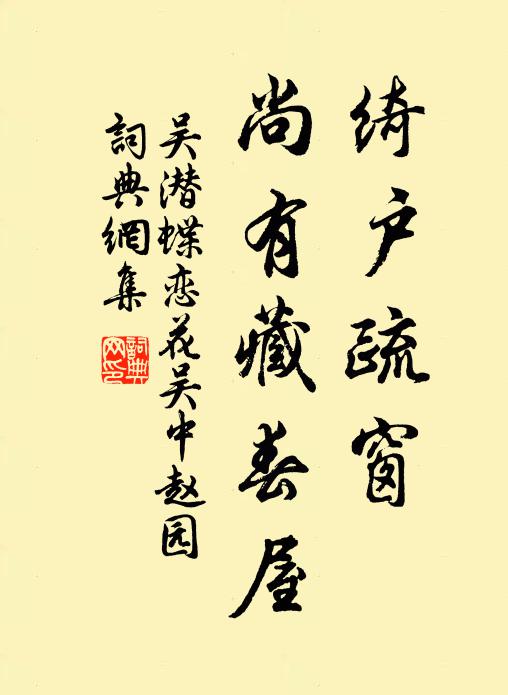 绮户疏窗
尚有藏春屋
吴潜蝶恋花吴中赵园
詞典網集
詞典网印